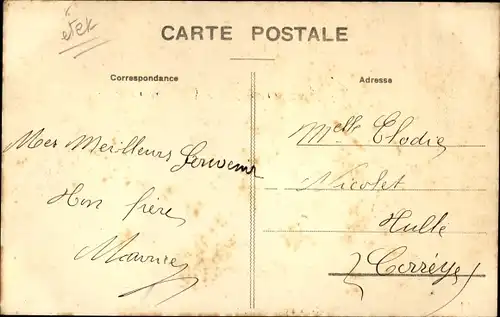 etek
CARTE POSTALE
Correspondance
Adresse
Mes Meilleurs Souvenir
Ton frère
Maurice
Melle Elodie
Nicolet
Hulle
(Corrèze)